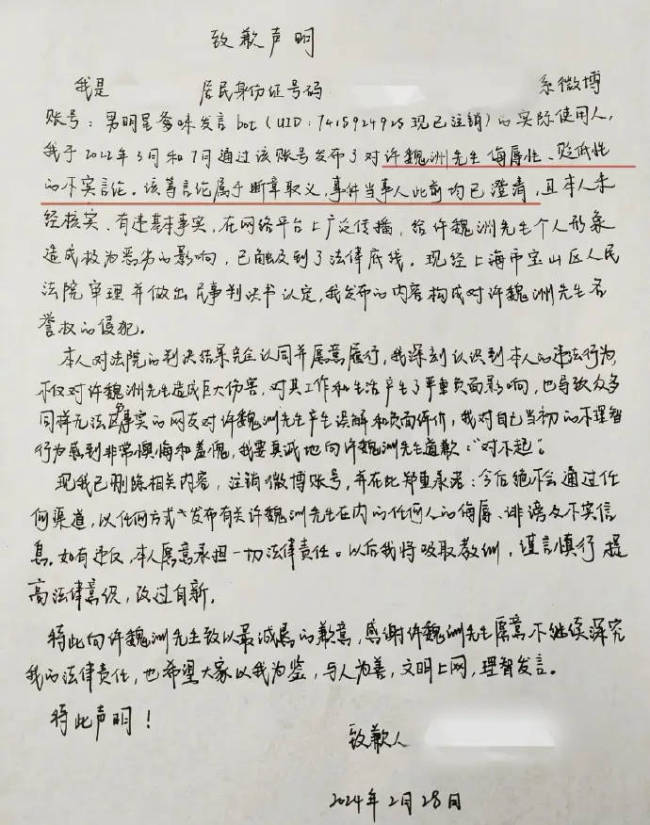 致歉声明
我是 居民身份证号码 系微博
账号：男明星爹味发言bot（UID：7415924925现已注销）的实际使用人，
我于2022年3月和7月通过该账号发布了对许魏洲先生侮辱性、贬低性
的不实言论。该等言论属于断章取义，事件当事人此前均已澄清，且本人未
经核实、有违基本事实，在网络平台上广泛传播，给许魏洲先生个人形象
造成极为恶劣的影响，已触及到了法律底线。现经上海市宝山区人民
法院审理并做出民事判决书认定，我发布的内容构成对许魏洲先生名
誉权的侵犯。
本人对法院的判决结果完全认同并愿意履行，我深刻认识到本人的违法行为，
不仅对许魏洲先生造成巨大伤害，对其工作和生活产生了严重负面影响，也导致众多
同样无法区分事实的网友对许魏洲先生产生误解和负面评价，我对自己当初的不理智
行为感到非常懊悔和羞愧，我要真诚地向许魏洲先生道歉：“对不起”。
现我已删除相关内容，注销微博账号，并在此郑重承诺：今后绝不会通过任
何渠道，以任何方式发布有关许魏洲先生在内的任何人的侮辱、诽谤及不实信
息。如有违反，本人愿意承担一切法律责任。以后我将吸取教训，谨言慎行 提
高法律意识，改过自新。
特此向许魏洲先生致以最诚恳的歉意，感谢许魏洲先生愿意不继续深究
我的法律责任，也希望大家以我为鉴，与人为善，文明上网，理智发言。
特此声明！
致歉人
2024年2月28日